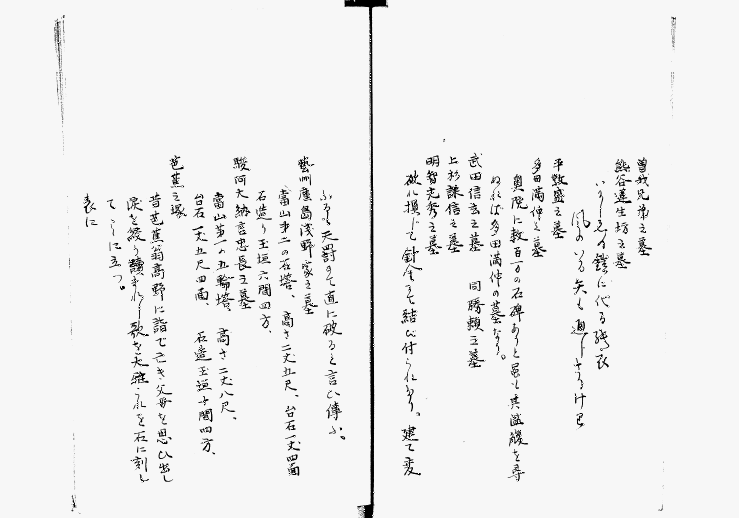 曽我兄弟之墓
熊谷蓮生坊之墓
いにしえの鎧に代る紙衣
風のいる矢も通らざりけり
平敦盛之墓
多田満仲之墓
奥院に数百万の石碑ありと雖も其濫觴を尋
ぬれば多田満仲の墓なり。
武田信玄之墓 同勝頼之墓
上杉謙信之墓
明智光秀之墓
破れ損じて針金にて結び付られたり。建て変
ふるも天罰にて直に破ると言ひ傳ふ。
藝州廣島浅野家之墓
當山第二の石塔、高さ二丈五尺、台石一丈四面
石造り玉垣六間四方、
駿河大納言忠長之墓
當山第一の五輪塔、高さ二丈八尺、
台石一丈五尺四面、石造玉垣十間四方、
芭蕉之塚
昔芭蕉翁高野に詣で亡き父母を思ひ出し
涙を絞り讀まれし歌を大雅、これを石に刻し
てここに立つ。
表に